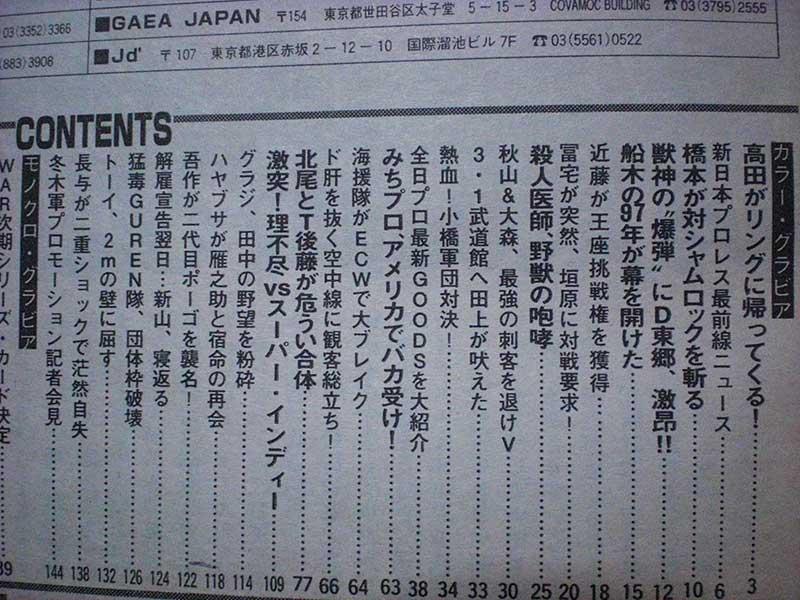 03(3352)3366
(883)3908
■GAEA JAPAN 〒154 東京都世田谷区太子堂 5-15-3 COVAMOC BUILDING ☎03(3795)2555
■Jd' 〒107 東京都港区赤坂2-12-10 国際溜池ビル7F ☎03(5561)0522
CONTENTS
カラー・グラビア
高田がリングに帰ってくる!……3
新日本プロレス最前線ニュース……6
橋本が対シャムロックを斬る……10
獣神の“爆弾”にD東郷、激昂!!……12
船木の97年が幕を開けた……15
近藤が王座挑戦権を獲得……18
冨宅が突然、垣原に対戦要求!……20
殺人医師、野獣の咆哮……25
秋山&大森、最強の刺客を退けV……30
3・1武道館へ田上が吠えた……33
熱血!小橋軍団対決!……34
全日プロ最新GOODSを大紹介……38
みちプロ、アメリカでバカ受け!……63
海援隊がECWで大ブレイク……64
ド肝を抜く空中線に観客総立ち!……66
北尾とT後藤が危うい合体……77
激突!理不尽vsスーパー・インディー……109
グラジ、田中の野望を粉砕……114
ハヤブサが雁之助と宿命の再会……118
吾作が二代目ポーゴを襲名!……122
解雇宣告翌日…新山、寝返る……124
猛毒GUREN隊、団体枠破壊……126
トーイ、2mの壁に屈す……132
長与が二重ショックで茫然自失……138
冬木軍プロモーション記者会見……144
モノクロ・グラビア
WAR次期シリーズ・カード決定……39